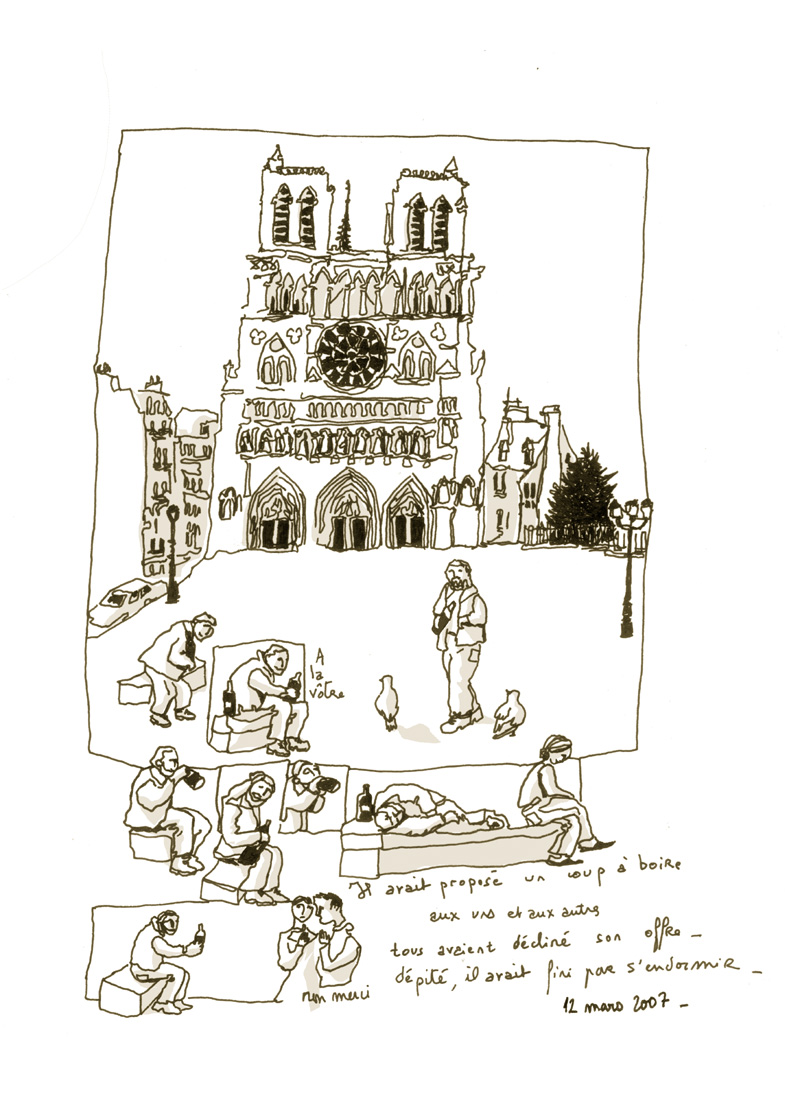 A
la
vôtre
Il avait proposé un coup à boire
aux uns et aux autres
tous avaient décliné son offre _
dépité, il avait fini par s'endormir _
non merci
12 mars 2007 _